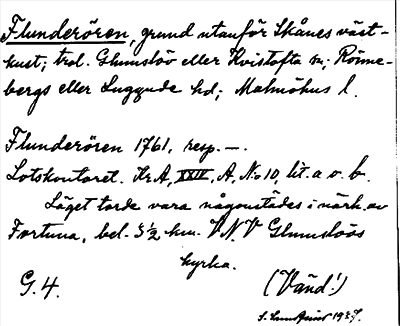 Flunderören, grund utanför Skånes väst-
kust; trol. Glumslöv eller Kvistofta sn; Rönne-
bergs eller Luggude hd; Malmöhus l.
Flunderören 1761, resp. —.
Lotskontoret. Kr.A, XXIV, A, No 10, lit. a o. b.
Läget torde vara någonstädes i närh. av
Fortuna, bel. 3½ km. V.N.V Glumslövs
kyrka.
G. 4.
(Vänd!)